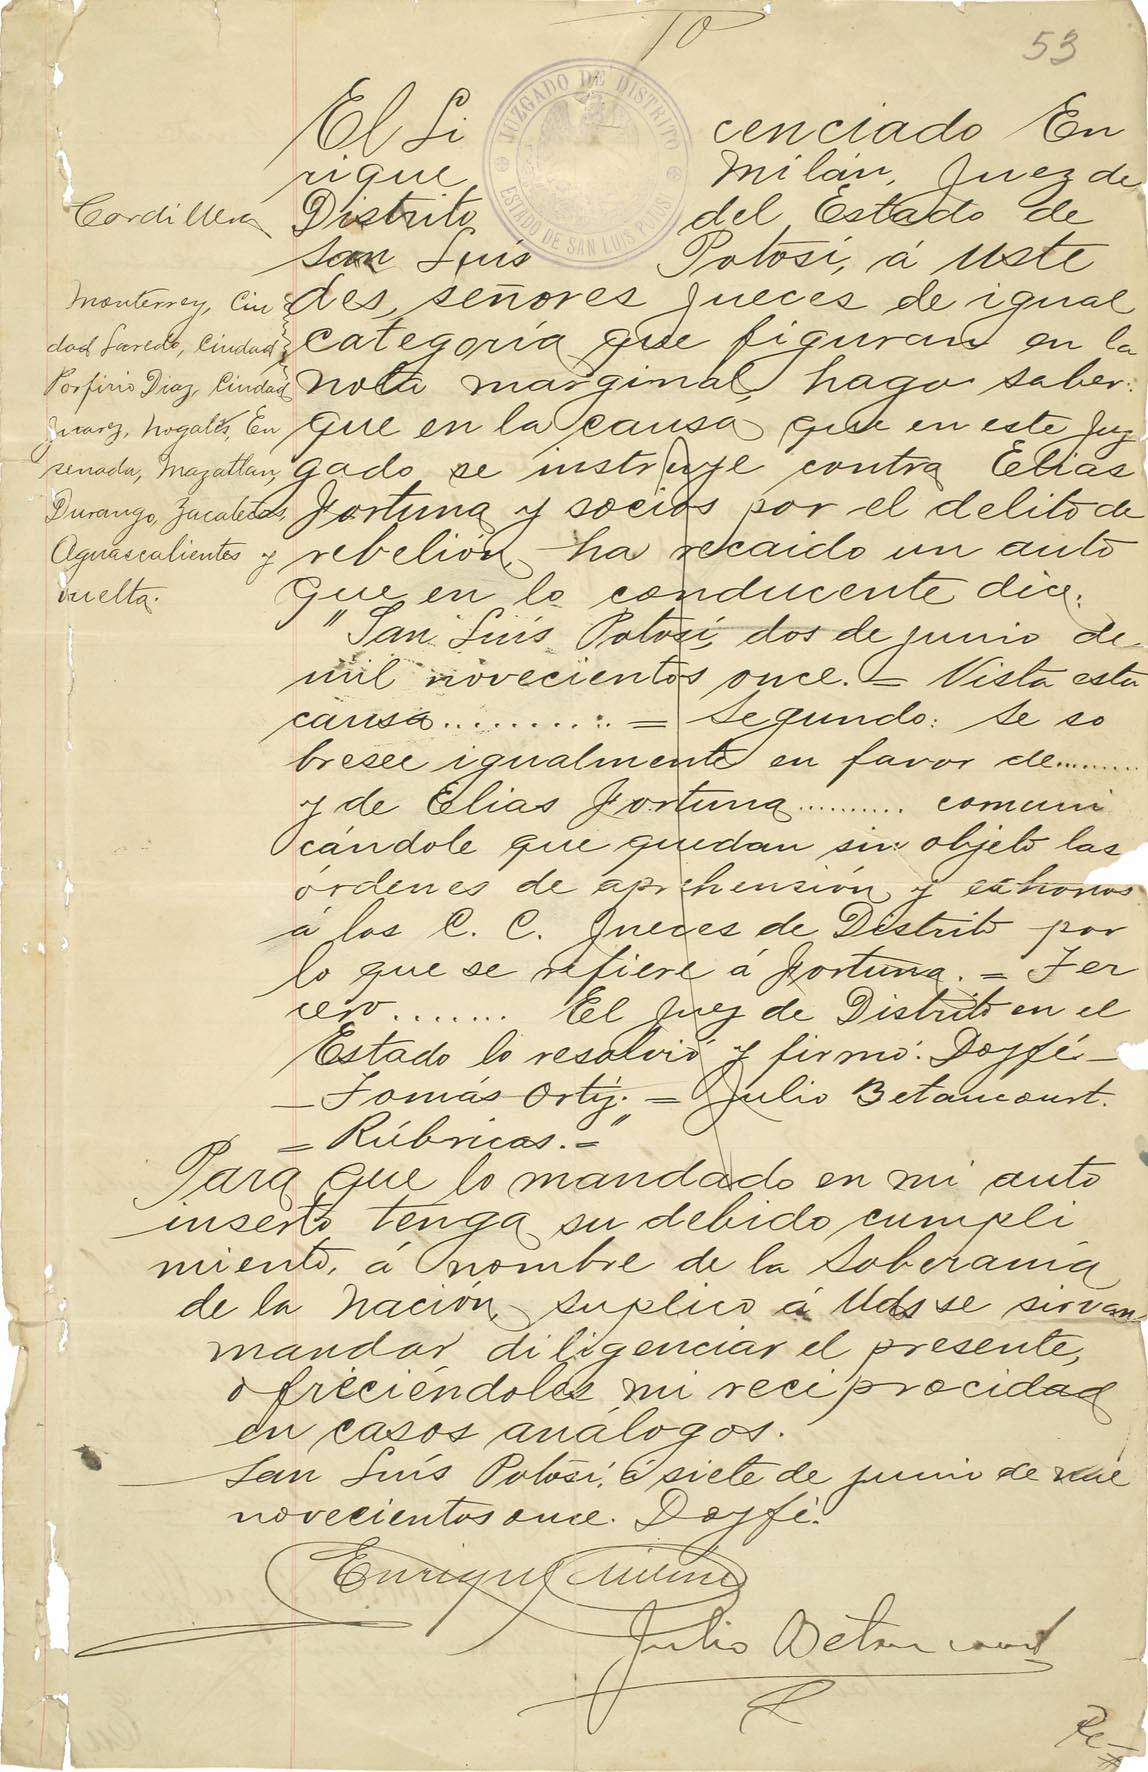 10
53
JUZGADO DE DISTRITO
ESTADO DE SAN LUIS POTOSI
El Li cenciado En
rique Milán, Juez de
Distrito del Estado de
San Luís Potosí, á Uste
des, señores Jueces de igual
categoría que figuran en la
nota marginal, hago saber:
que en la causa que en este Juz
gado se instruye contra Elias
Fortuna y socios por el delito de
rebelión, ha recaido un auto
que en lo conducente dice:
"San Luís Potosí, dos de junio de
mil novecientos once. = Vista esta
causa.......... = Segundo: Se so
bresee igualmente en favor de.........
y de Elias Fortuna.......... comuni
cándole que quedan sin objeto las
órdenes de aprehensión y exhortos
á los C. C. Jueces de Distrito por
lo que se refiere á Fortuna. = Ter
cero....... El Juez de Distrito en el
Estado lo resolvió y firmó. Doy fé. —
— Tomás Ortiz. = Julio Betancourt.
= Rúbricas. = "
Para que lo mandado en mi auto
inserto tenga su debido cumpli
miento, á nombre de la Soberanía
de la Nación, suplico á Uds se sirvan
mandar diligenciar el presente,
ofreciéndoles mi reciprocidad
en casos análogos.
San Luís Potosí, á siete de junio de mil
novecientos once. Doy fé.
Enrique Milán
Julio Betancourt
Cordillera
Monterrey, Ciu
dad Laredo, Ciudad
Porfirio Diaz, Ciudad
Juarez, Nogales, En
senada, Mazatlan,
Durango, Zacatecas,
Aguascalientes y
vuelta.